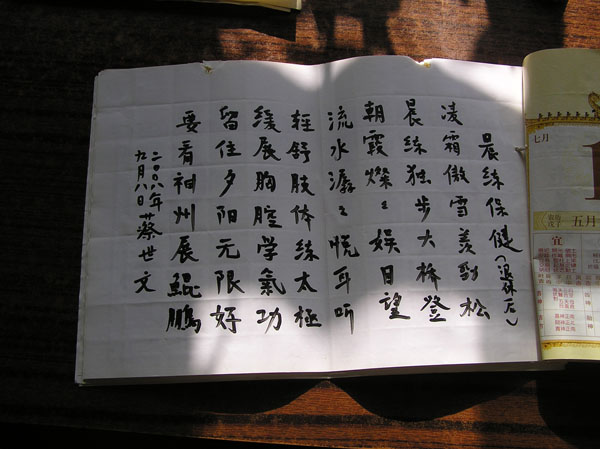 晨练保健(退休后)
凌霜傲雪羡劲松
晨练独步大桥登
朝霞燦々娱日望
流水潺々悦耳听
輕舒肢体练太极
缓展胸腔学氣功
留住夕阳无限好
要看神州展鲲鹏
二〇〇八年
九月八日 蔡世文
七月
五月
宜